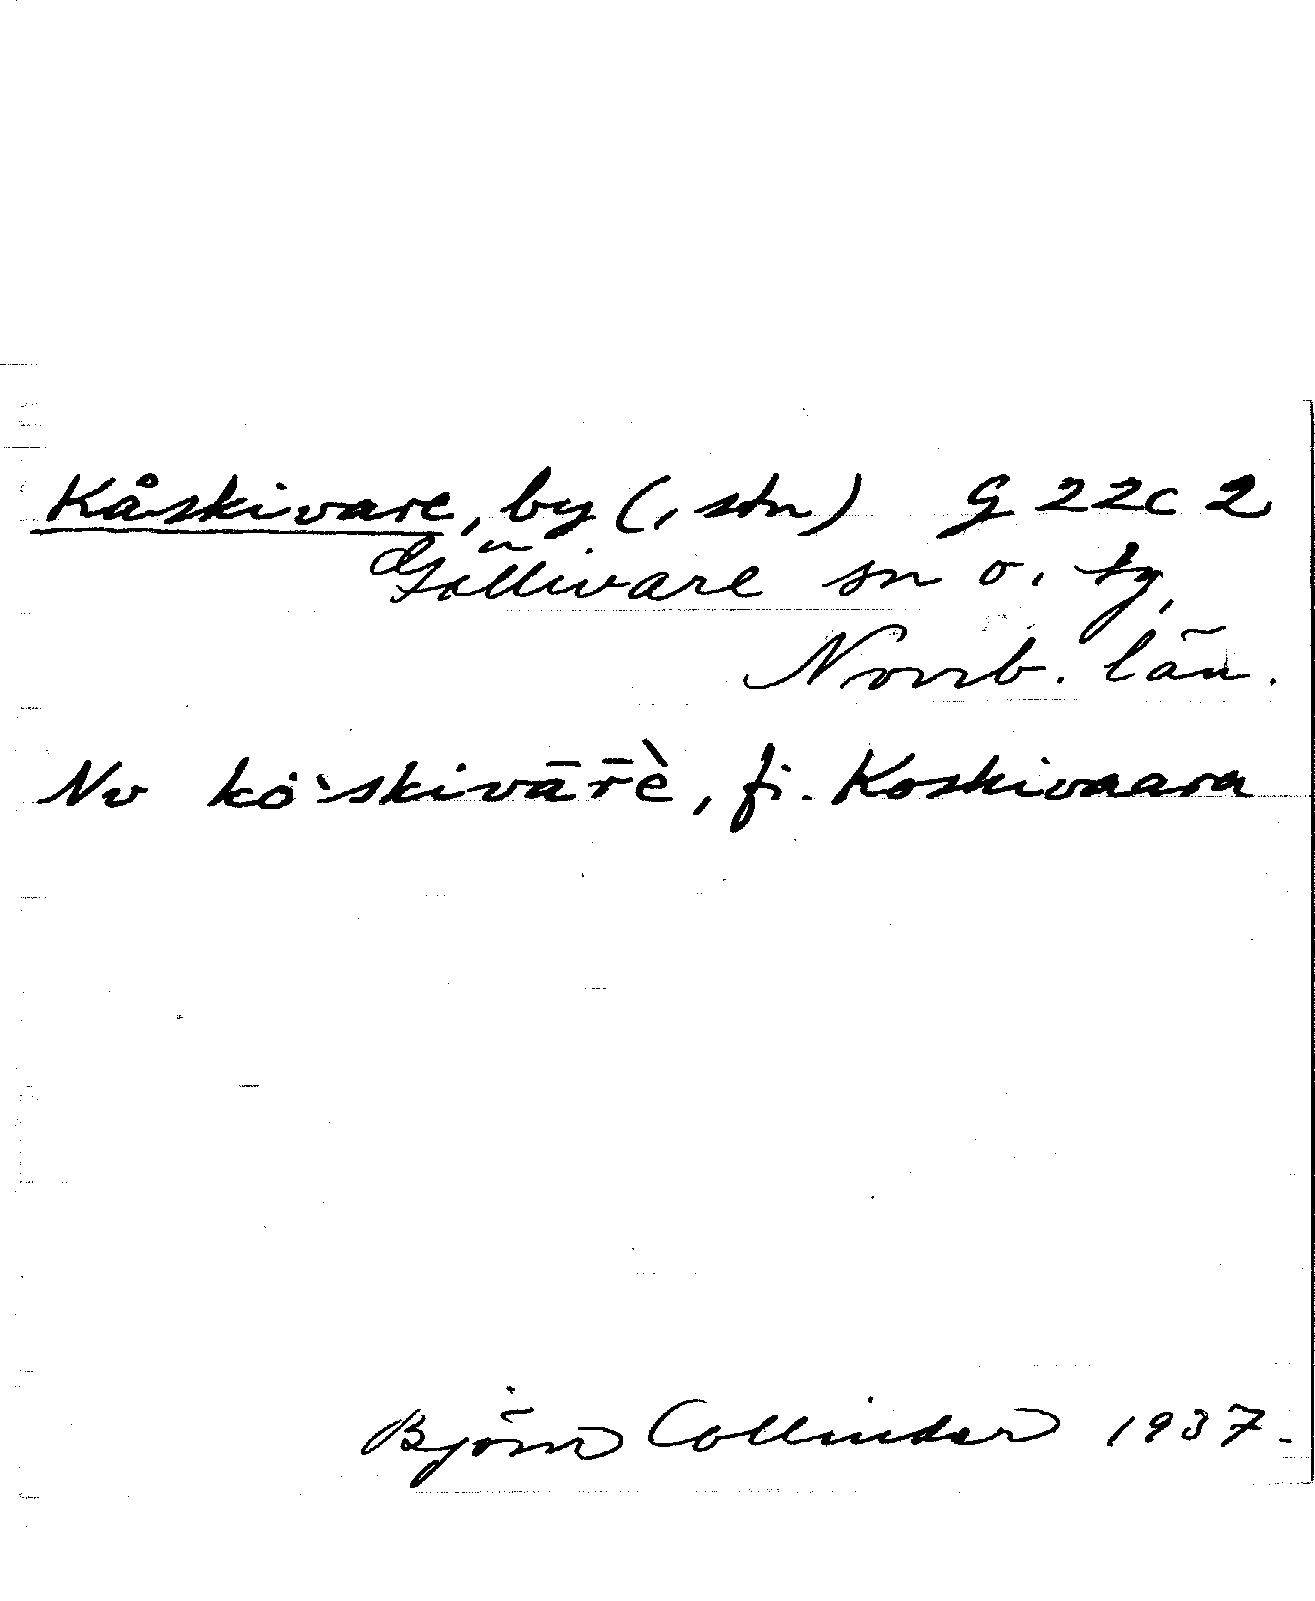 Kåskivare, by (, stn) G 22c 2
Gällivare sn o. tg,
Norrb. län.
Nv kö̀skivār̄è, fi. Koskivaara
Björn Collinder 1937.